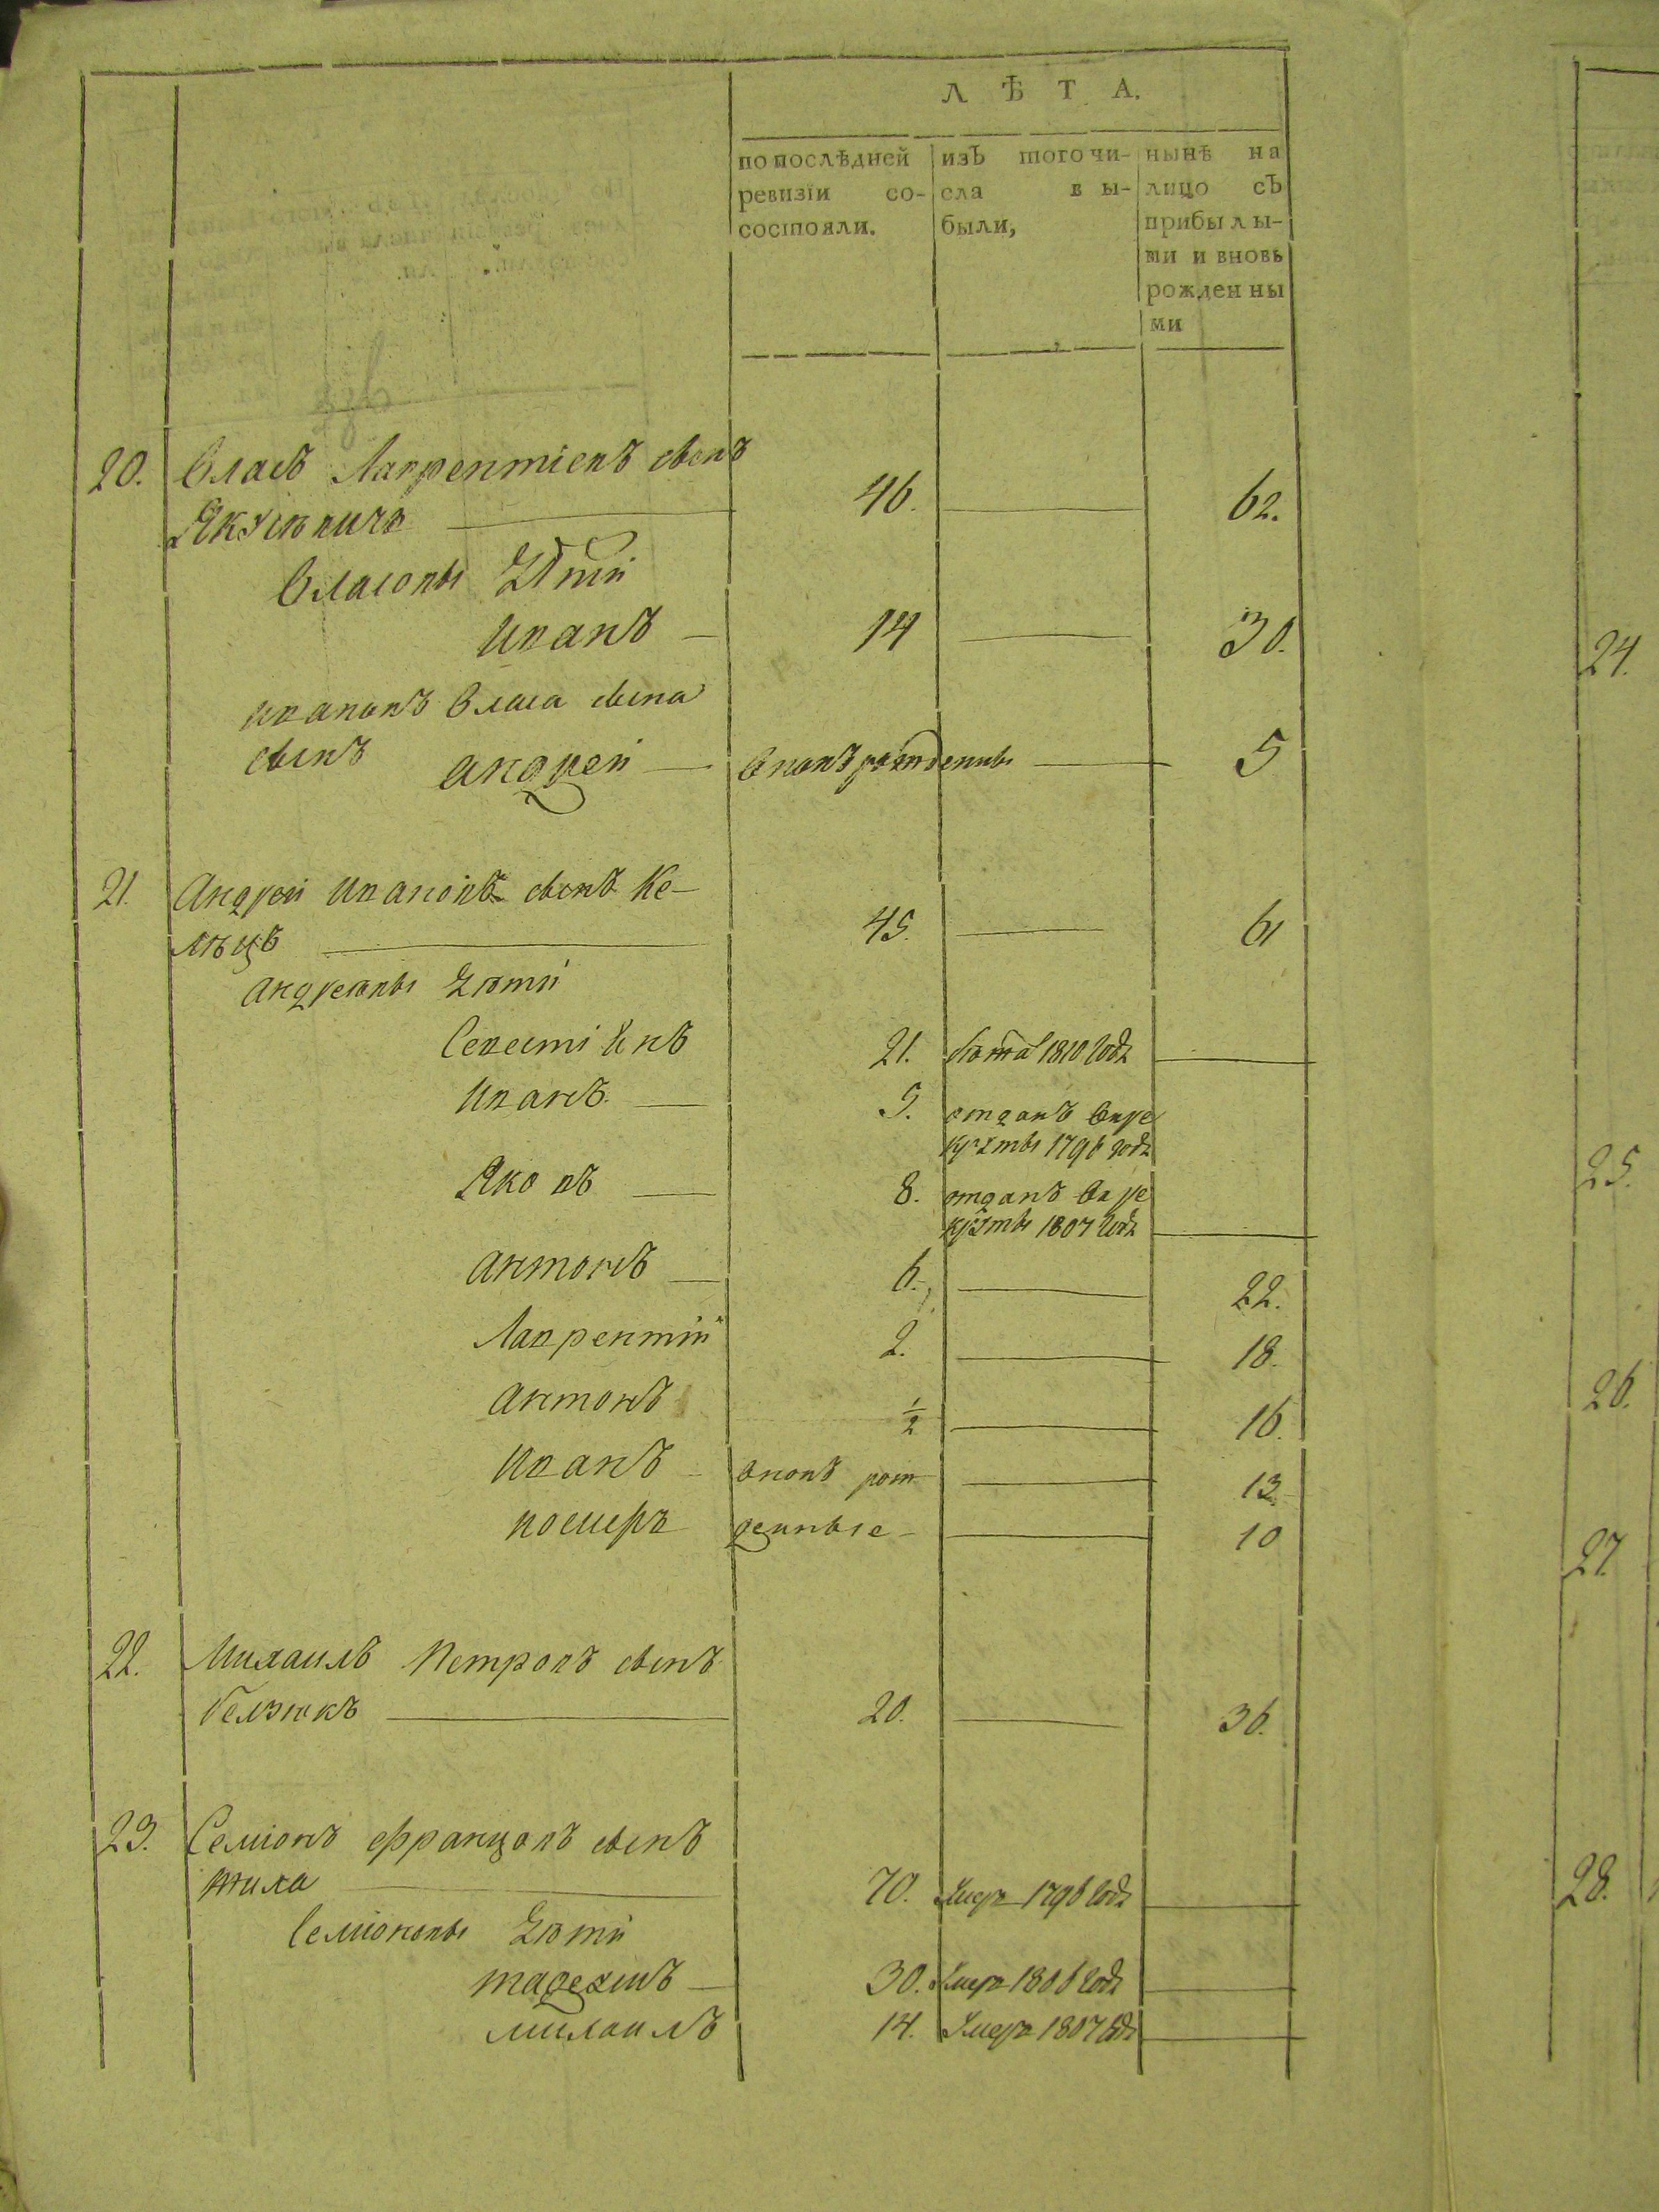 Л Ѣ Т А.
по послѣдней ревизіи со-состояли.
изЪ того чи-сла вы-были,
нынѣ на лицо сЪ прибылы-ми и вновь рожденны ми
20. Власъ Лаврентіевъ сынъ
46. 62.
Власовы Дѣти
Иванъ 14 30.
Ивановъ Власа сына
сынъ Андреи вновь рожденны 5
21. Андреи Ивановъ сынъ Ке-
лецъ 45. 61
Андреевы Дѣти
21. 1810 Года
Иванъ 5. отданъ в ре
круты 1796 года
Яковъ 8. отданъ в ре
круты 1807 Года
Антонъ 6. 22.
Лаврентіи 2. 18.
Антонъ ½ 16.
Иванъ вновь рож 13.
денные 10
22. Михаилъ Петровъ сынъ
20. 36.
23. Семіонъ Францовъ сынъ
Жила 70. Умеръ 1796 Года
Семіоновы Дѣти
30. Умеръ 1806 Года
Михаилъ 14. Умеръ 1807 Года
24.
25.
26.
27.
28.